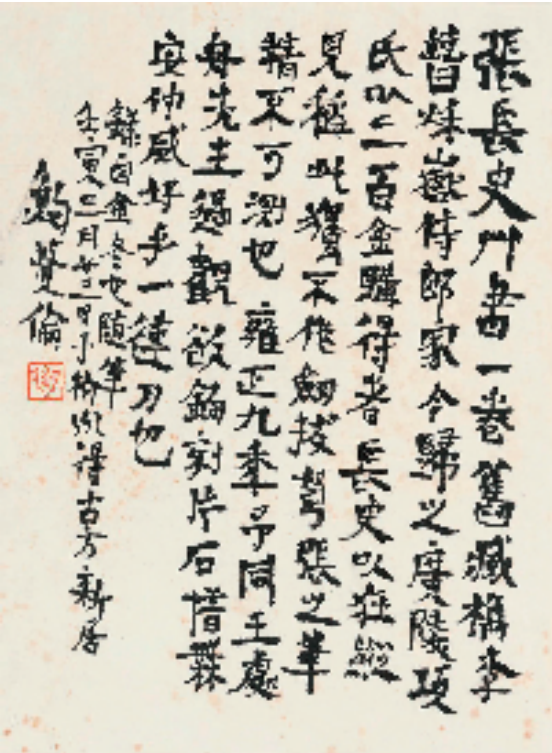 張長史艸書一卷舊藏檇李
曹秌嶽侍郎家今歸之廣陵項
氏以二百金購得者長史以狂縱
見稱此獨不作劒拔弩張之筆
精不可測也雍正九年予同王處
士先生過觀欲鉤刻片石惜無
安仲咸好手一徒刀也
錄自金冬心隨筆
壬寅二月廿二日于 得古方新居